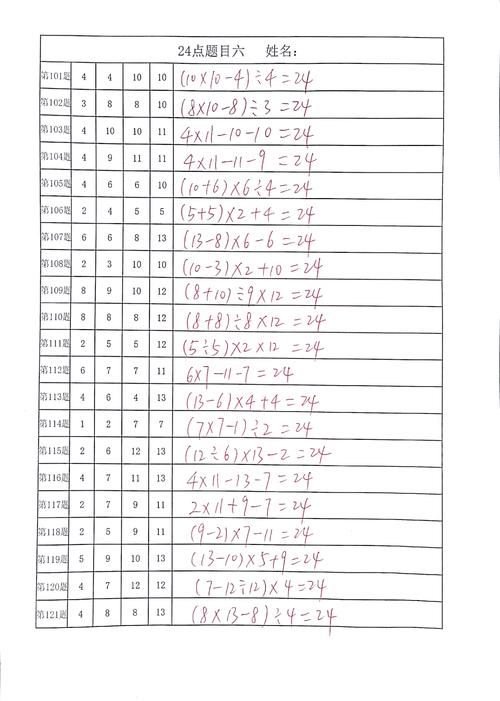 24点题目六 姓名:
第101题 4 4 10 10 (10×10-4)÷4=24
第102题 3 8 8 10 (8×10-8)÷3=24
第103题 4 10 10 11 4×11-10-10=24
第104题 4 9 11 11 4×11-11-9=24
第105题 4 6 6 10 (10+6)×6÷4=24
第106题 2 4 5 5 (5+5)×2+4=24
第107题 6 6 8 13 (13-8)×6-6=24
第108题 2 3 10 10 (10-3)×2+10=24
第109题 8 9 10 12 (8+10)÷9×12=24
第110题 8 8 8 12 (8+8)÷8×12=24
第111题 2 5 5 12 (5÷5)×2×12=24
第112题 6 7 7 11 6×7-11-7=24
第113题 4 6 4 13 (13-6)×4+4=24
第114题 1 2 7 7 (7×7-1)÷2=24
第115题 2 6 12 13 (12÷6)×13-2=24
第116题 4 7 11 13 4×11-13-7=24
第117题 2 7 9 11 2×11+9-7=24
第118题 2 5 9 11 (9-2)×7-11=24
第119题 5 9 10 13 (13-10)×5+9=24
第120题 4 7 12 12 (7-12÷12)×4=24
第121题 4 8 8 13 (8×13-8)÷4=24